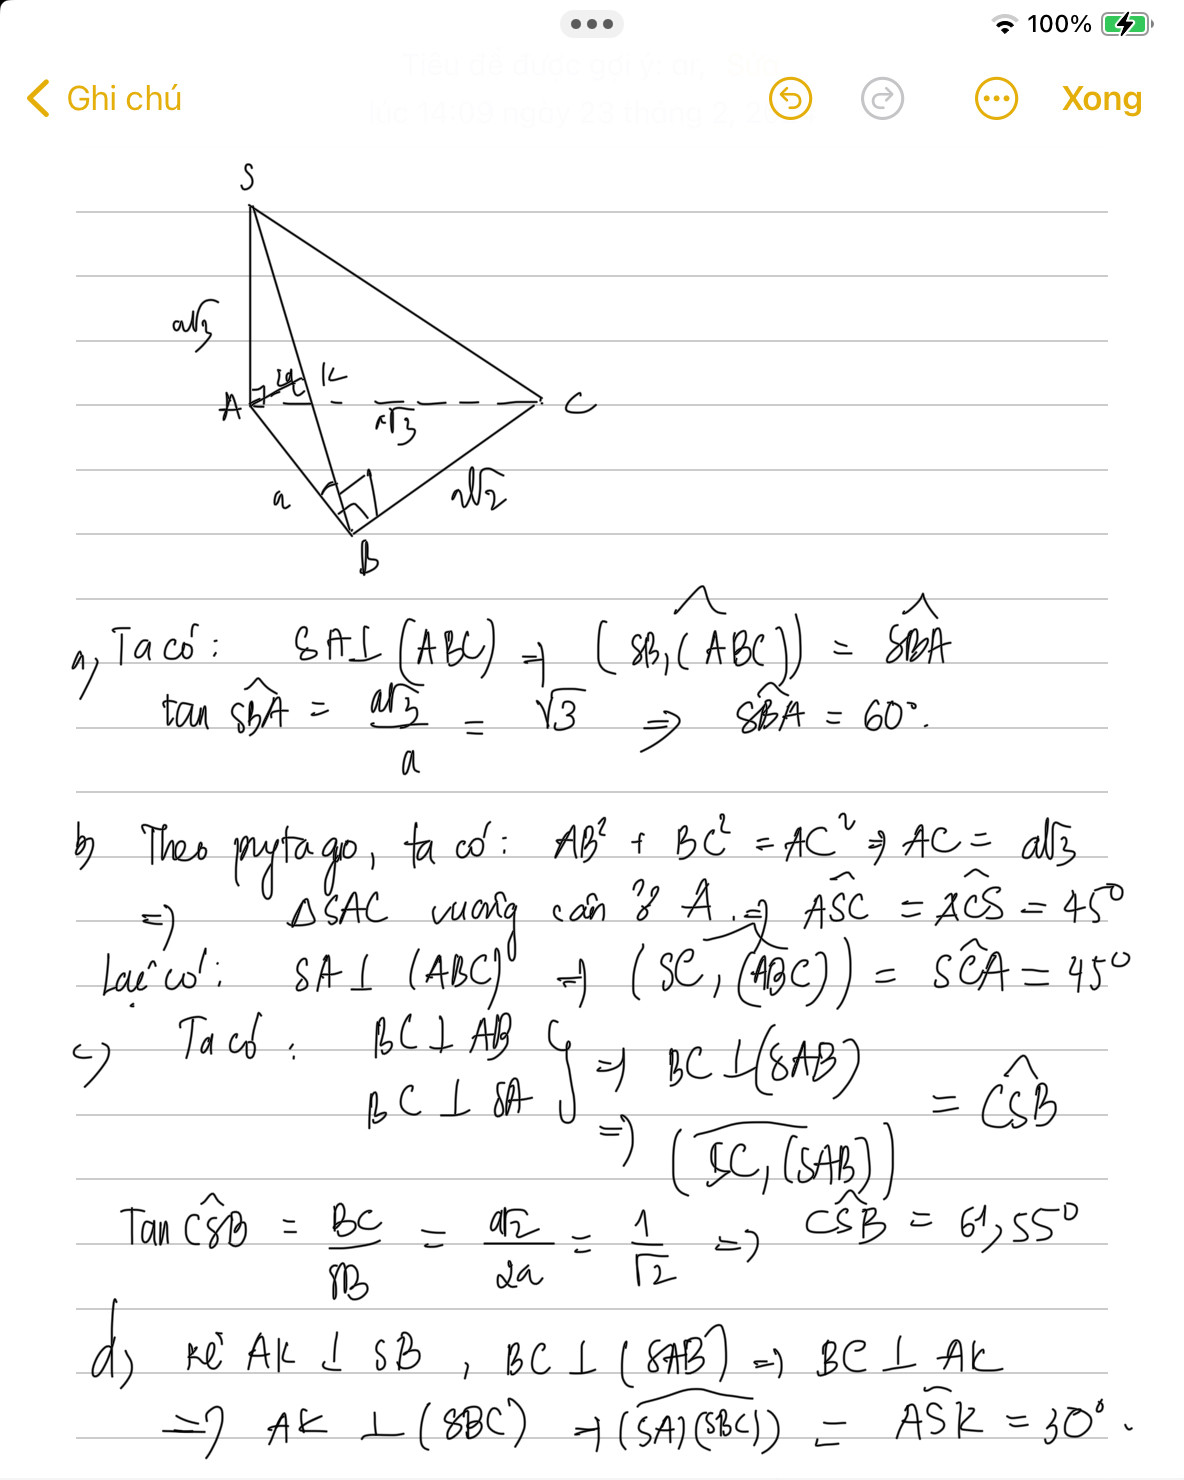 100%
Ghi chú
Xong
S
a√3
K
A
C
a√3
a
a√2
B
a, Ta có: SA⊥(ABC) => (SB,(ABC)) = SBA
tan SBA = a√3/a = √3 => SBA = 60°.
b, Theo pytago, ta có: AB² + BC² = AC² => AC = a√3
=> ΔSAC vuông cân ở A. => ASC = ACS = 45°
Lại có: SA⊥(ABC) => (SC,(ABC)) = SCA = 45°
c) Ta có: BC⊥AB
BC⊥SA } => BC⊥(SAB)
=> (SC,(SAB)) = CSB
Tan CSB = BC/SB = a√2/2a = 1/√2 => CSB = 61,55°
d, Kẻ AK⊥SB, BC⊥(SAB) => BC⊥AK
=> AK⊥(SBC) => (SA)(SBC)) = ASK = 30°.